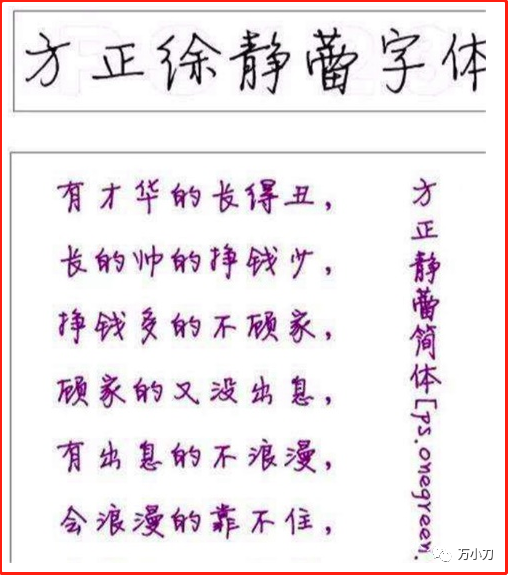 方正徐静蕾字体
有才华的长得丑，
长的帅的挣钱少，
挣钱多的不顾家，
顾家的又没出息，
有出息的不浪漫，
会浪漫的靠不住，
方正静蕾简体[ps.onegreen.
万小刀